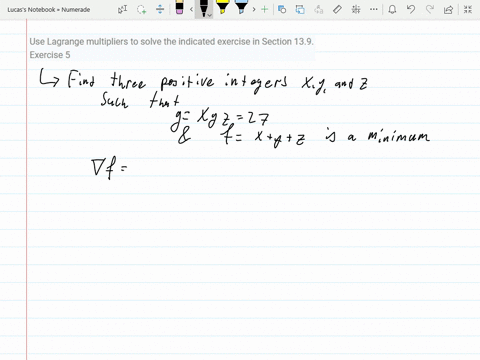 Lucas's Notebook • Numerade
Use Lagrange multipliers to solve the indicated exercise in Section 13.9.
Exercise 5
↳ Find three positive integers x, y, and z
such that
g = xyz = 27
& f = x+y+z is a minimum
∇f =